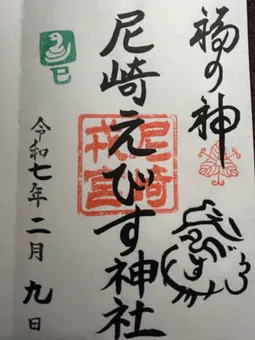 福の神
尼崎えびす神社
尼崎戎宮
巳
令和七年二月九日
えびす